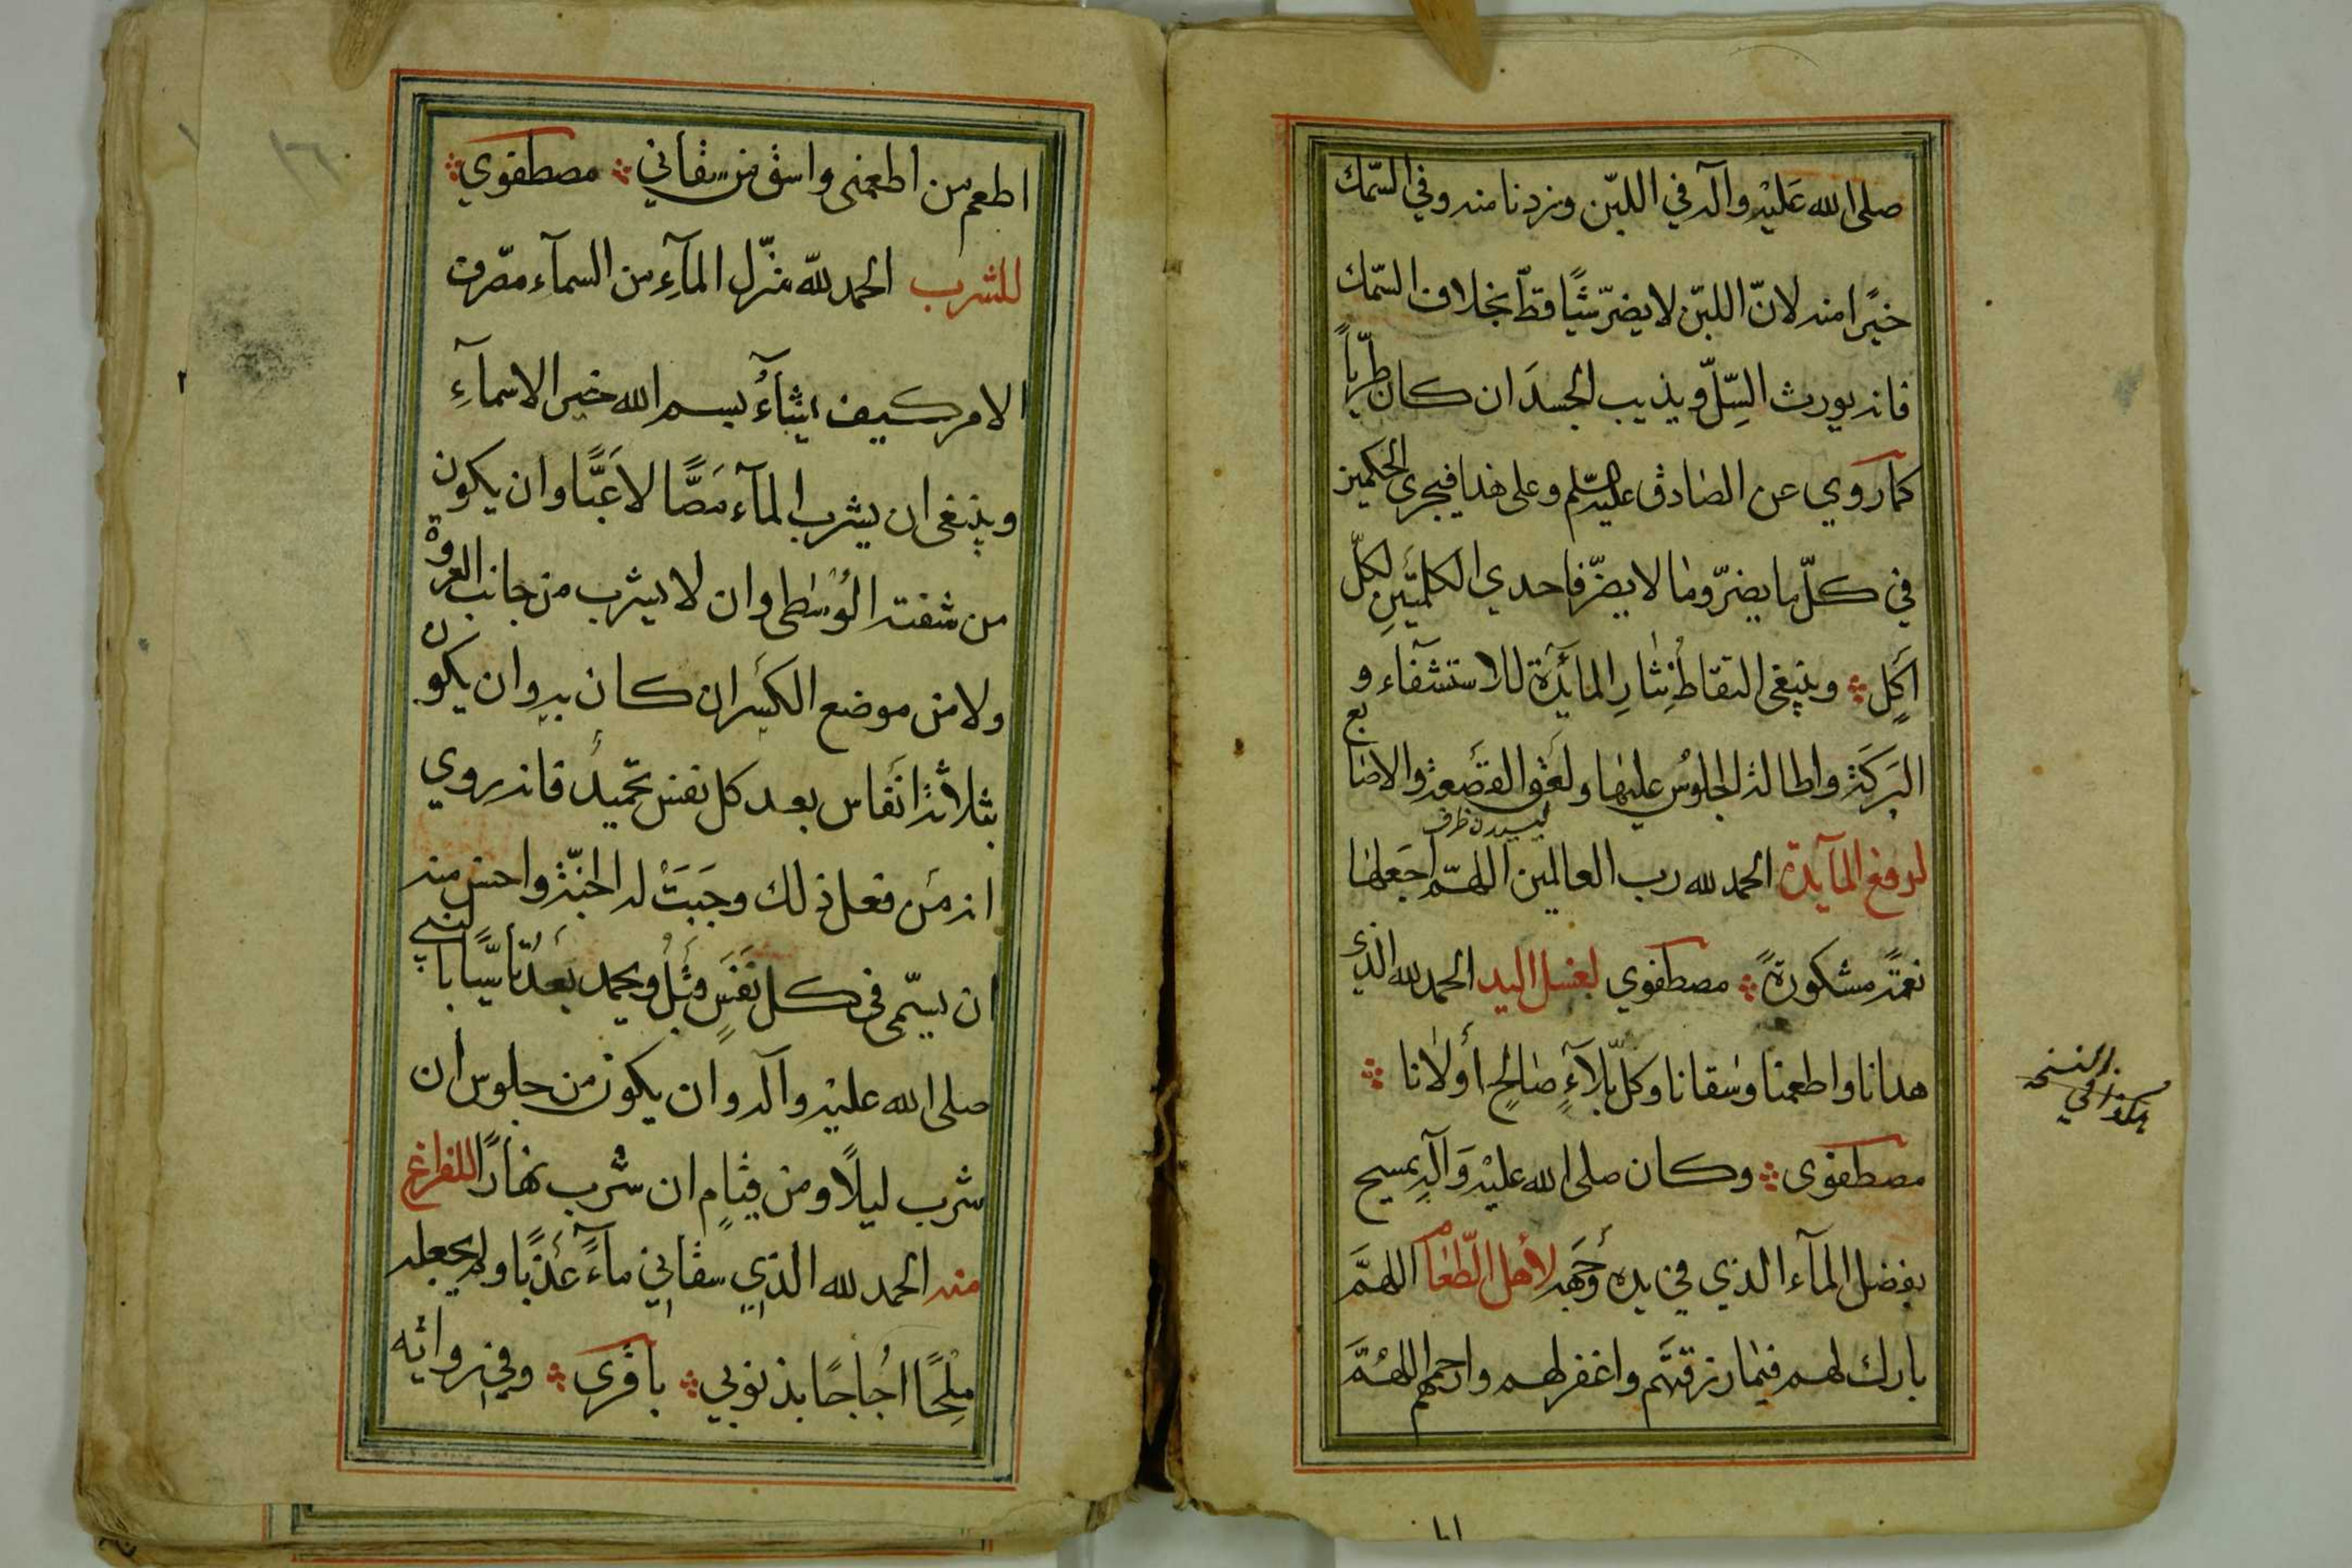 صلى الله عَليْه وآله في اللبّن وزدنا منه وفي السّمك
خيًرا منه لانّ اللبّن لا يضرّ شيًا قطّ بخلاف السّمك
فانه يورث السِّلّ ويذيب الجسدَ ان كان طريّاً
كما روي عن الصادق عليه السّلم وعلى هذا فيجرى الحكمين
في كلّ ما يضرّ وما لا يضرّ فاحدي الكلمتَينِ لكلّ
اَكلٍ وينبغى التقاطُ نِثارِ المائدَة للاستشفَآء و
البَركَة واطالة الجلوُس عليها ولعَق القَصعة والاصابع
ليسيدن ظرف
لرفع المآيدة الحمد لله رب العالمين اللهمّ اجعَلها
نعمةً مشكورةً مصطفوي لغسل اليد الحمد لله الذي
هدانا واطعمنا وسقانا وكلّ بلآءٍ صالحٍ أولانا
مصطفوى وكان صلى الله عليْه وَآلِه يمسح
بفضل المآء الذي في يده وَجهَه لأهل الطّعام اللهمَّ
بارك لهم فيما رزقتَهم واغفر لهم وارحمهم اللهُمَّ
هكذا في النسخة
اطعم من اطعمنى واسق من سقاني مصطفوي
للشرب الحمد لله منزّل المآءِ من السمآء مصرّف
الامر كيف يشآءُ بسم الله خير الاسمآءِ
وينبغى ان يشرب المآء مَصًّا لا عَبًّا وان يكون
من شفته الوُسْطى وان لا يشرب من جانب العروة
ولا من موضع الكسَر ان كان به وان يكون
بثلاثة انَفاس بعد كل نفس تحميدُ فانه روي
انه مَن فعل ذلك وجَبَتْ له الجنّة واحسن منه
ان يسمّى في كل نفَسٍ قبْلُ ويحمد بَعدُ تأسّيًا بالنبي
صلى الله عليْه وآله وان يكون من جلوس ان
شرب ليلًا ومن قيامٍ ان شرب نهارًا للفراغ
منه الحمد لله الذي سقاني مآءً عَذبًا ولم يجعله
مِلْحًا اُجاجًا بذنوبي باقرى وفي رواية